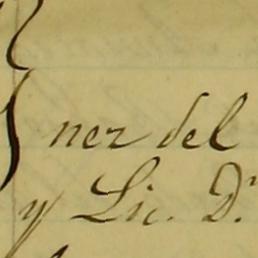 nez del
y Lic. D.